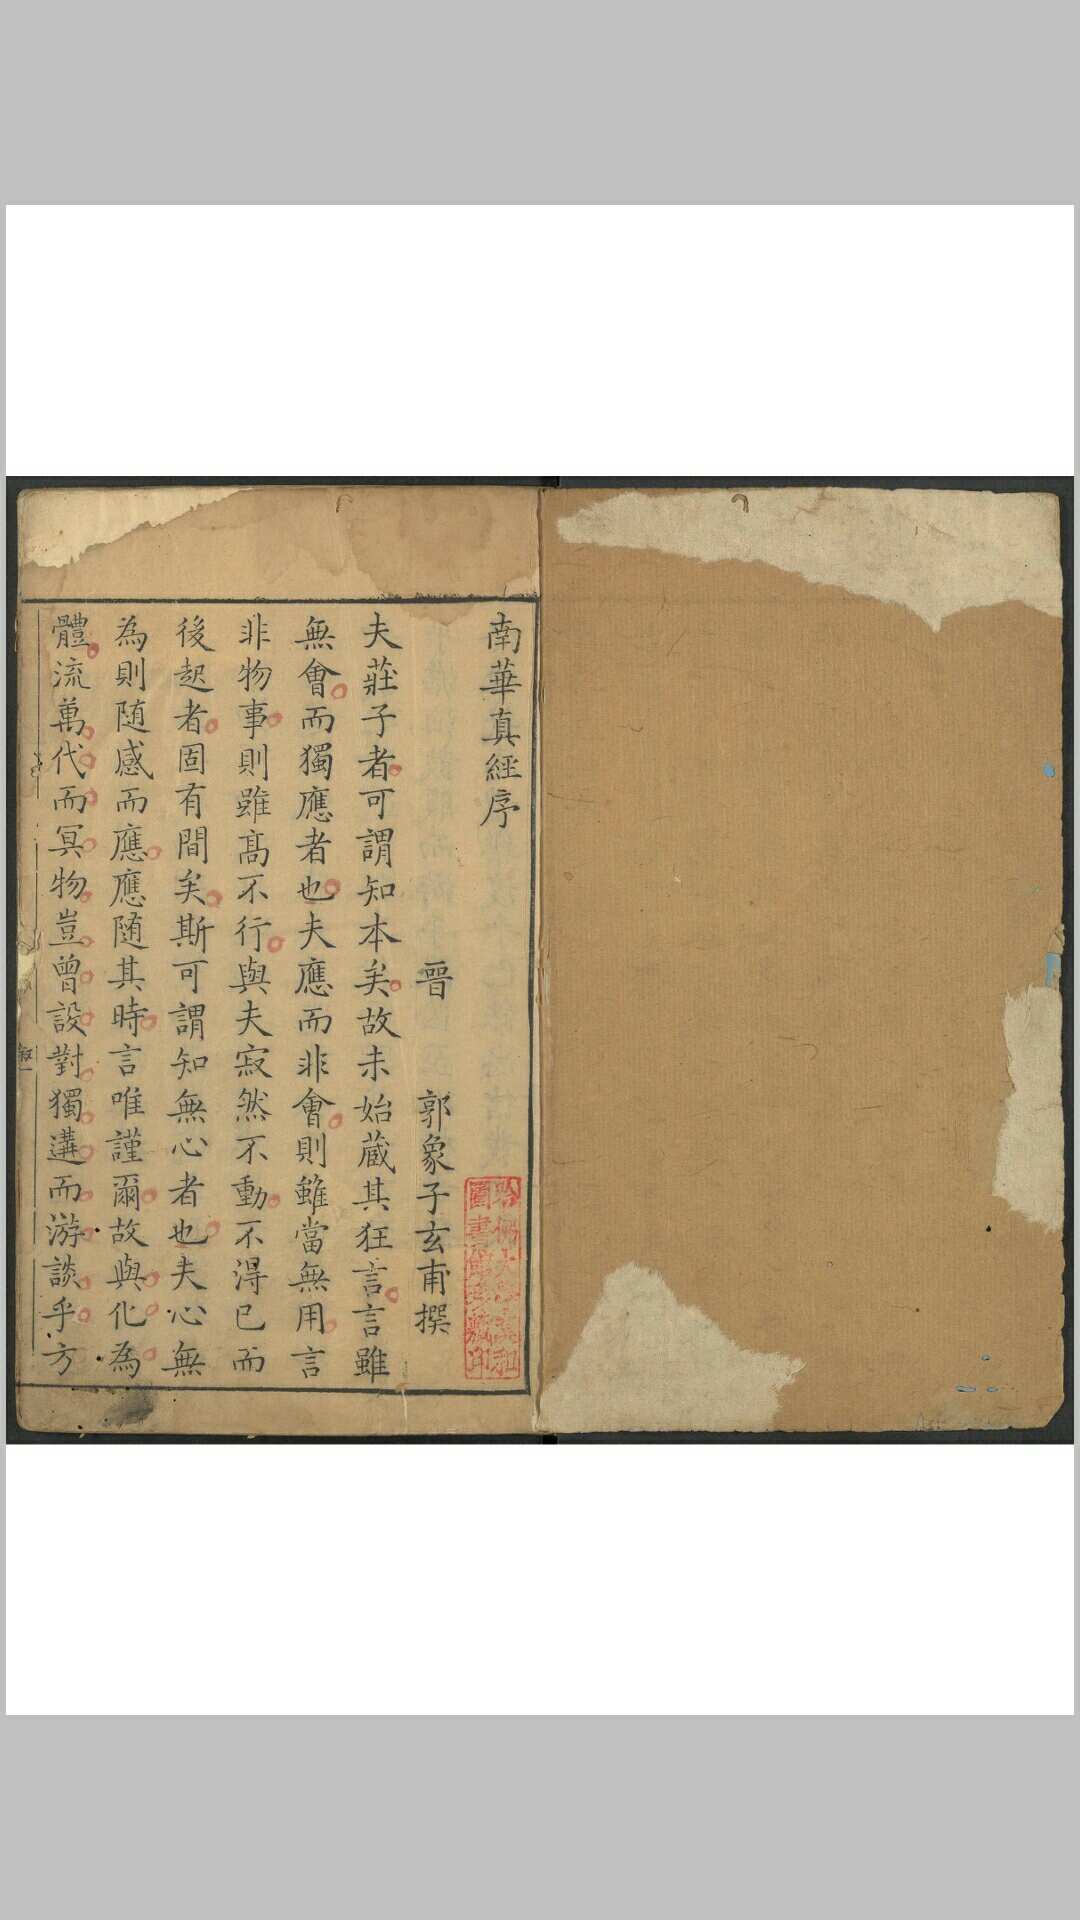 南華真經序
晋　郭象子玄甫撰
夫莊子者可謂知本矣故未始蔵其狂言言雖
無會而獨應者也夫應而非會則雖當無用言
非物事則雖髙不行與夫寂然不動不得已而
後起者固有間矣斯可謂知無心者也夫心無
為則随感而應應随其時言唯謹爾故與化為
體流萬代而冥物豈曾設對獨遘而游談乎方
哈佛大學
圖書館珍藏印